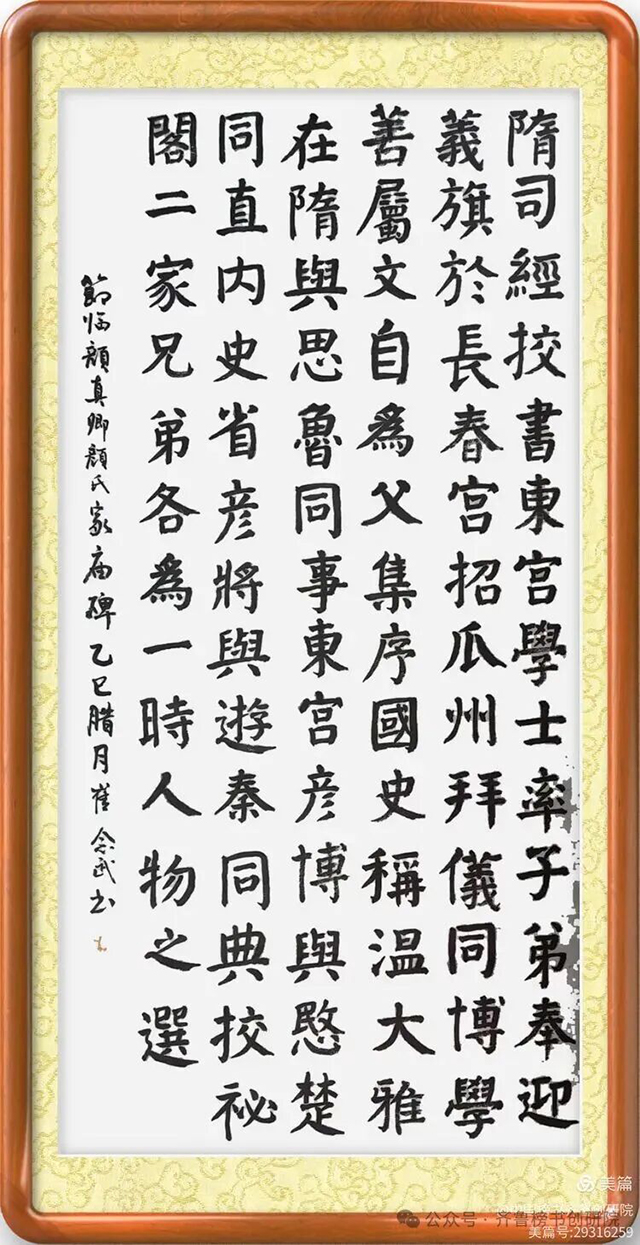 隋司經挍書東宮學士率子弟奉迎
義旗於長春宮招瓜州拜儀同博學
善屬文自為父集序國史稱溫大雅
在隋與思魯同事東宮彥博與愍楚
同直内史省彥將與遊秦同典挍祕
閣二家兄弟各為一時人物之選
節临顏真卿顏氏家庙碑乙巳腊月崔念武书
美篇
公众号·齐鲁榜书创研院
美篇号:29316259